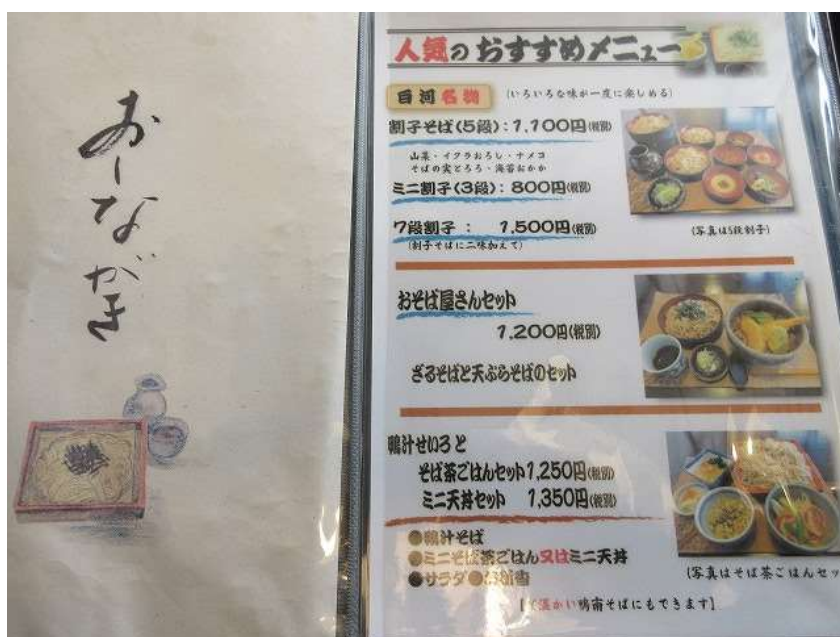 おーながき
人気のおすすめメニュー
白河名物 (いろいろな味が一度に楽しめる)
割子そば(5段):1,100円(税別)
山菜・イクラおろし・ナメコ
そばの実とろろ・海苔おかか
ミニ割子(3段):800円(税別)
7段割子 : 1,500円(税別)
(割子そばに二味加えて)
(写真は5段割子)
おそば屋さんセット
1,200円(税別)
ざるそばと天ぷらそばのセット
鴨汁せいろと
そば茶ごはんセット1,250円(税別)
ミニ天丼セット 1,350円(税別)
●鴨汁そば
●ミニそば茶ごはん又はミニ天丼
●サラダ●お新香
(写真はそば茶ごはんセッ
温かい鴨南そばにもできます】